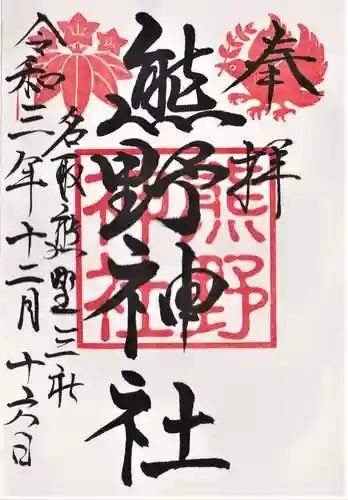 奉拝
熊野神社
熊野
神社
名取熊野三社
令和二年十二月十六日